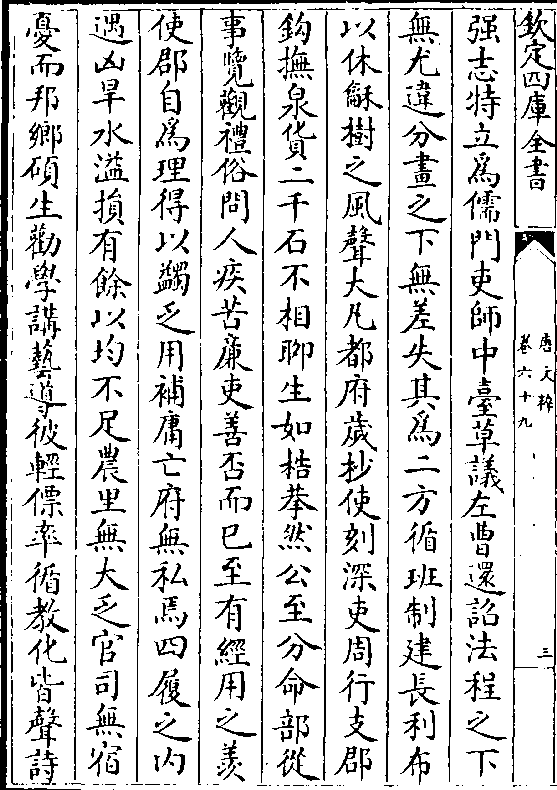 欽定四庫全書
唐文粹
卷六十九
三
强志特立爲儒門吏師中臺草議左曹還詔法程之下
無尤違分畫之下無差失其爲二方循班制建長利布
以休龢樹之風聲大凡都府歲抄使刻深吏周行支郡
鈎撫泉貨二千石不相聊生如梏拲然公至分命部從
事覽觀禮俗問人疾苦廉吏善否而已至有經用之羨
使郡自爲理得以蠲乏用補庸亡府無私焉四履之内
遇凶旱水溢損有餘以均不足農里無大乏官司無宿
憂而邦鄉碩生勸學講藝導彼輕僄率循教化皆聲詩